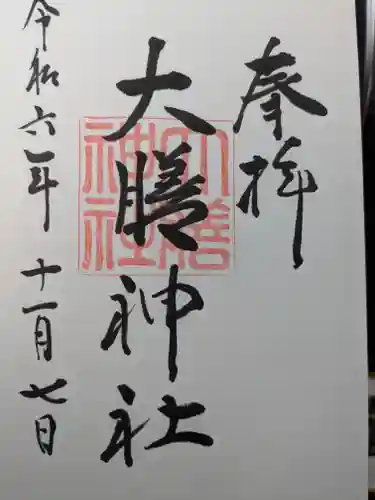 奉拝
大膳神社
大膳神社
令和六年十一月七日